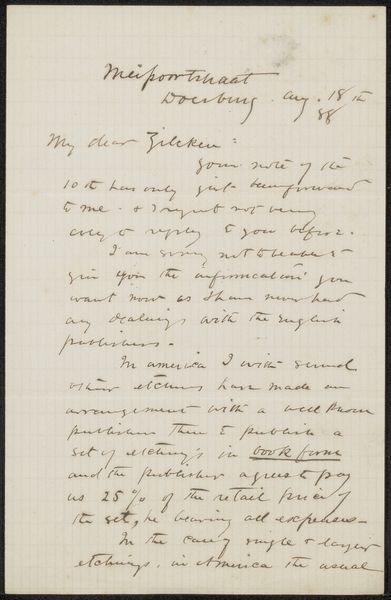 Meipoortstraat
Doesburg. Aug. 18th
88
My dear Zilcken:
Your note of the
10th has only just been forward
to me. & I regret not being
to reply to you before.
I am sorry not to be able to
give you the information you
want now as I have never had
any dealings with the English
publishers.
In America I with several
other etchers have made an
arrangement with a well known
publisher there to publish a
set of etchings in book form
and the publisher agrees to pay
us 25% of the retail price of
the set, he bearing all expenses.
In the case of single & larger
etchings, in America the usual